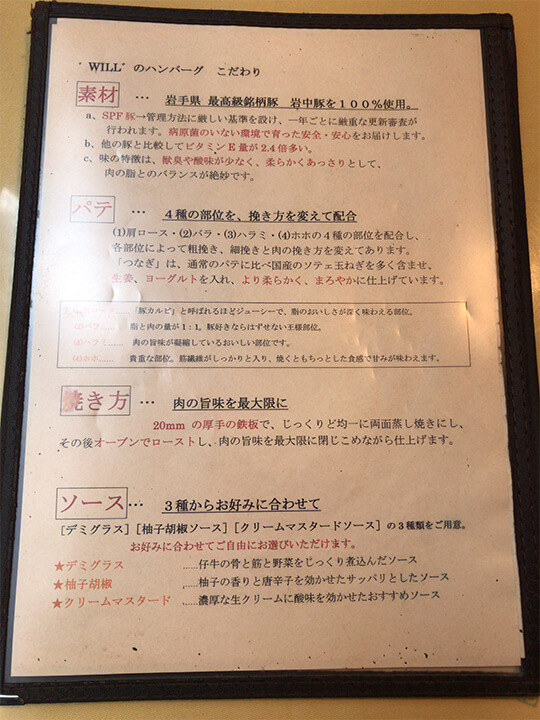 "WILL"のハンバーグ こだわり
素材 … 岩手県 最高級銘柄豚 岩中豚を100%使用。
a、SPF豚→管理方法に厳しい基準を設け、一年ごとに厳重な更新審査が
行われます。病原菌のいない環境で育った安全・安心をお届けします。
b、他の豚と比較してビタミンE量が2.4倍多い。
c、味の特徴は、獣臭や酸味が少なく、柔らかくあっさりとして、
肉の脂とのバランスが絶妙です。
パテ … 4種の部位を、挽き方を変えて配合
(1)肩ロース・(2)バラ・(3)ハラミ・(4)ホホの4種の部位を配合し、
各部位によって粗挽き、細挽きと肉の挽き方を変えてあります。
「つなぎ」は、通常のパテに比べ国産のソテェ玉ねぎを多く含ませ、
生姜、ヨーグルトを入れ、より柔らかく、まろやかに仕上げています。
ロース……「豚カルビ」と呼ばれるほどジューシーで、脂のおいしさが深く味わえる部位。
(2)バラ…… 脂と肉の量が1:1。豚好きならはずせない王様部位。
(3)ハラミ…… 肉の旨味が凝縮しているおいしい部位です。
(4)ホホ…… 貴重な部位。筋繊維がしっかりと入り、焼くともちっとした食感で甘みが味わえます。
焼き方 … 肉の旨味を最大限に
20mm の厚手の鉄板で、じっくりど均一に両面蒸し焼きにし、
その後オーブンでローストし、肉の旨味を最大限に閉じこめながら仕上げます。
ソース … 3種からお好みに合わせて
[デミグラス][柚子胡椒ソース][クリームマスタードソース]の3種類をご用意。
お好みに合わせてご自由にお選びいただけます。
★デミグラス ……仔牛の骨と筋と野菜をじっくり煮込んだソース
★柚子胡椒 ……柚子の香りと唐辛子を効かせたサッパリとしたソース
★クリームマスタード ……濃厚な生クリームに酸味を効かせたおすすめソース